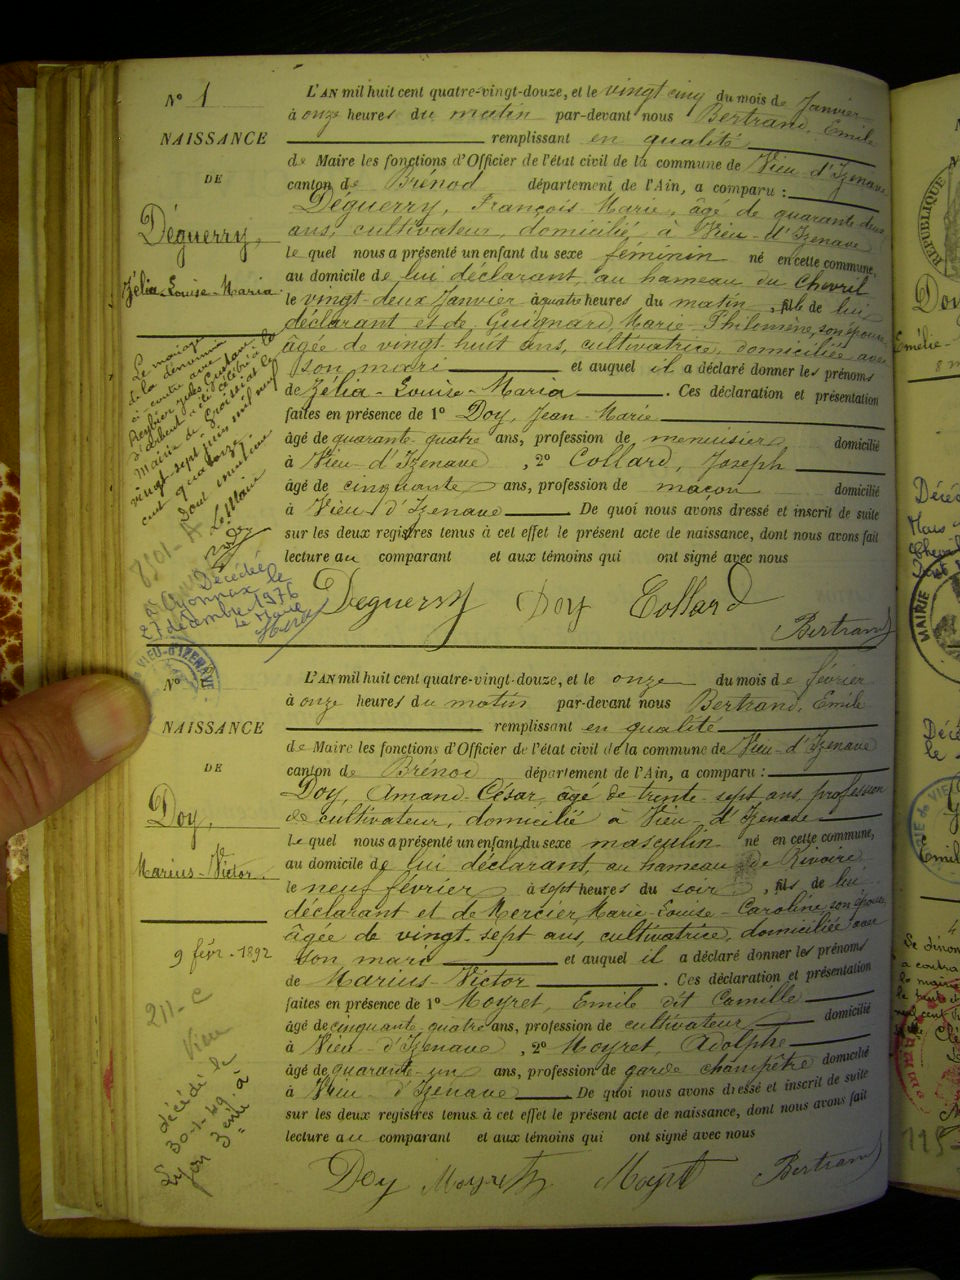 N° 1
NAISSANCE
DE
Déguerry,
Zélia-Louise-Maria
L'AN mil huit cent quatre-vingt-douze, et le vingt cinq du mois de Janvier
à onze heures du matin par-devant nous Bertrand, Emile
remplissant en qualité
de Maire les fonctions d'Officier de l'état civil de la commune de Vieu-d'Izenave
canton de Brénod département de l'Ain, a comparu :
Déguerry, François-Marie, âgé de quarante deux
ans, cultivateur, domicilié à Vieu-d'Izenave
le quel nous a présenté un enfant du sexe féminin né en cette commune,
au domicile de lui déclarant, au hameau du Chevril
le vingt-deux Janvier à quatre heures du matin, fils de lui
déclarant et de Guignard, Marie-Philimène, son épouse
âgée de vingt huit ans, cultivatrice, domiciliée avec
son mari et auquel il a déclaré donner les prénoms
de Zélia-Louise-Maria. Ces déclaration et présentation
faites en présence de 1° Doy, Jean-Marie
âgé de quarante-quatre ans, profession de menuisier, domicilié
à Vieu-d'Izenave, 2° Collard, Joseph
âgé de cinquante ans, profession de maçon domicilié
à Vieu-d'Izenave. De quoi nous avons dressé et inscrit de suite
sur les deux registres tenus à cet effet le présent acte de naissance, dont nous avons fait
lecture au comparant et aux témoins qui ont signé avec nous
Deguerry Doy Collard
Bertrand
Le mariage
de la dénommée
ci contre avec
Reybier Jules
d'Arbent a été célébré à la
Mairie de Groissiat le
vingt-sept juin mil neuf
cent quatorze
Dont mention
8501-A
Décédée
à Oyonnax le
27 décembre 1976
Le Maire
VIEU-D'IZENAVE
N°
NAISSANCE
DE
Doy,
Marius-Victor.
9 févr. 1892
211-C
Vieu
décédé le
30-1-49 à
Lyon 3ème
L'AN mil huit cent quatre-vingt-douze, et le onze du mois de février
à onze heures du matin par-devant nous Bertrand, Emile
remplissant en qualité
de Maire les fonctions d'Officier de l'état civil de la commune de Vieu-d'Izenave
canton de Brénod département de l'Ain, a comparu :
Doy, Amand-César, âgé de trente-sept ans, profession
de cultivateur, domicilié à Vieu-d'Izenave
le quel nous a présenté un enfant du sexe masculin né en cette commune,
au domicile de lui déclarant, au hameau de Rivoire
le neuf février à sept heures du soir, fils de lui
déclarant et de Mercier, Marie-Louise-Caroline, son épouse,
âgée de vingt-sept ans, cultivatrice, domiciliée avec
son mari et auquel il a déclaré donner les prénoms
de Marius-Victor. Ces déclaration et présentation
faites en présence de 1° Moyret, Emile dit Camille
âgé de cinquante quatre ans, profession de cultivateur domicilié
à Vieu-d'Izenave, 2° Moyret, Adolphe
âgé de quarante-un ans, profession de garde champêtre domicilié
à Vieu d'Izenave. De quoi nous avons dressé et inscrit de suite
sur les deux registres tenus à cet effet le présent acte de naissance, dont nous avons fait
lecture au comparant et aux témoins qui ont signé avec nous
Doy Moyret Moyret Bertrand
RÉPUBLIQUE
MAIRIE